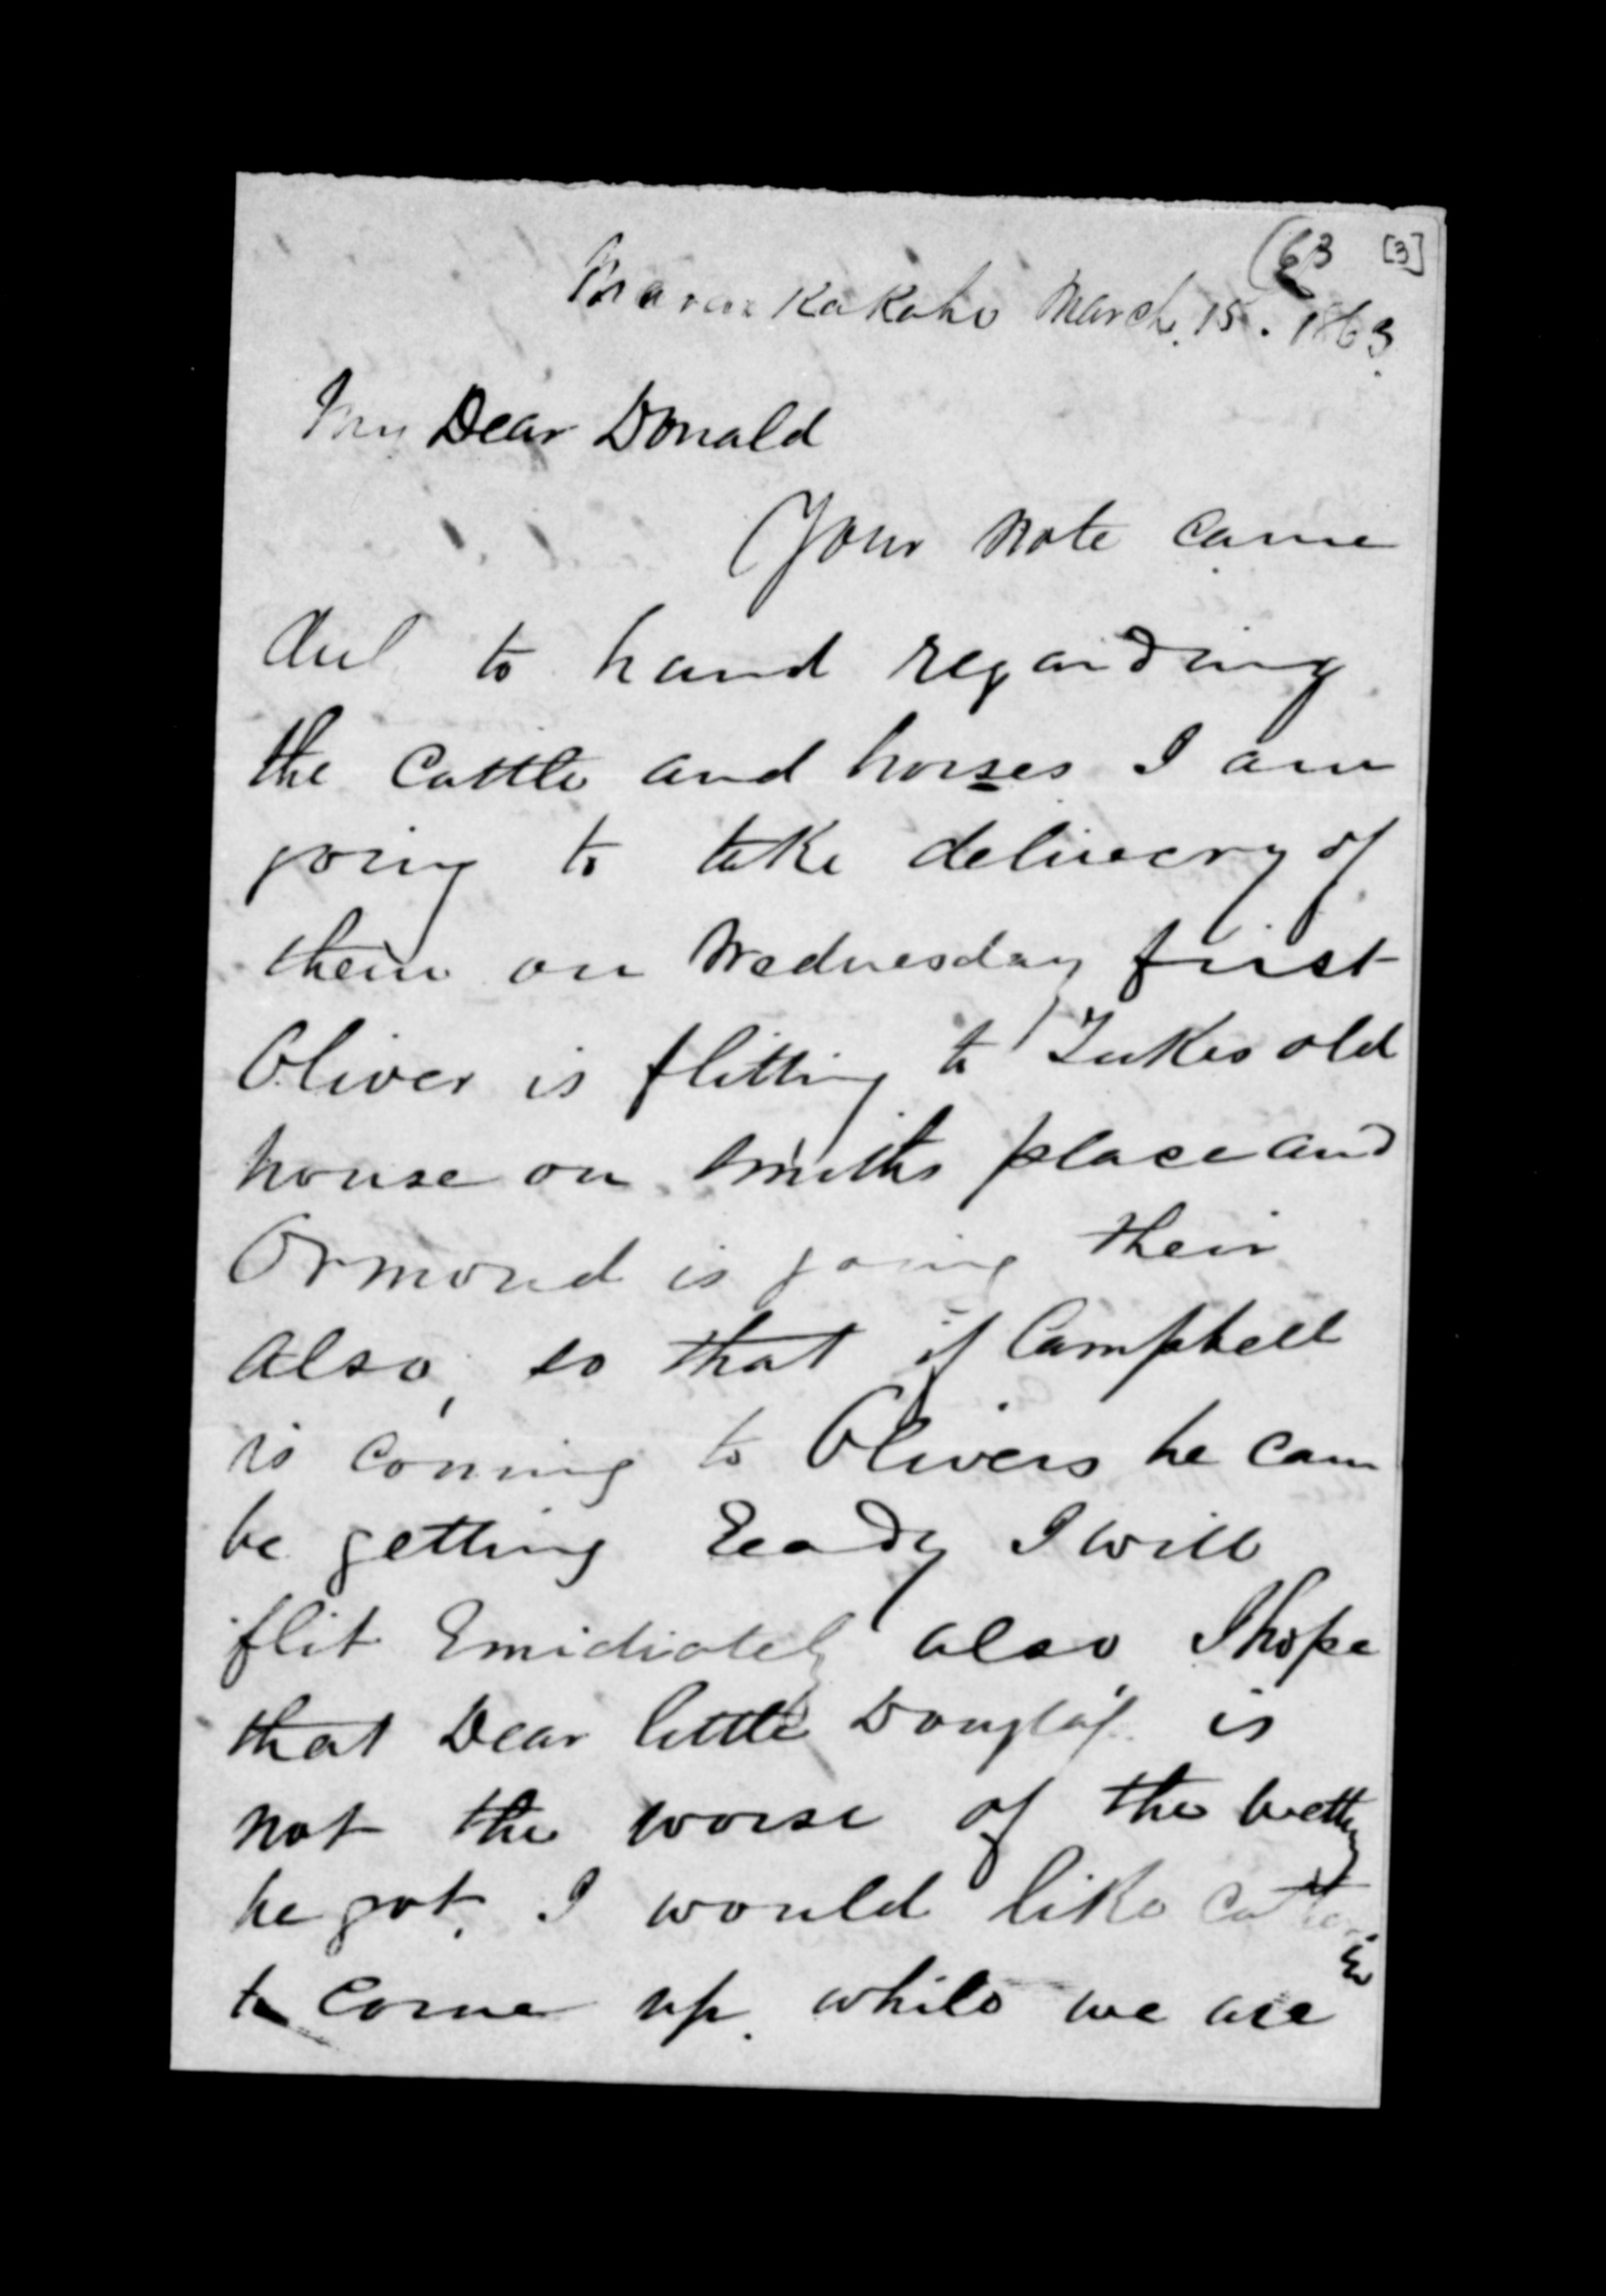 (63 [3]
Marae Kakaho March. 15. 1863.
My Dear Donald
Your note came
to hand regarding
the Cattle and horses I am
going to take delivery of
them on Wednesday first
Oliver is flitting to Tukes old
house on Smiths place and
Ormond is going their
also, so that if Campbell
is coming to Olivers he can
be getting Ready I will
flit Emidiately also I hope
that Dear little Douglas is
not the worse of the wetting
he got, I would like
to come up. while we are